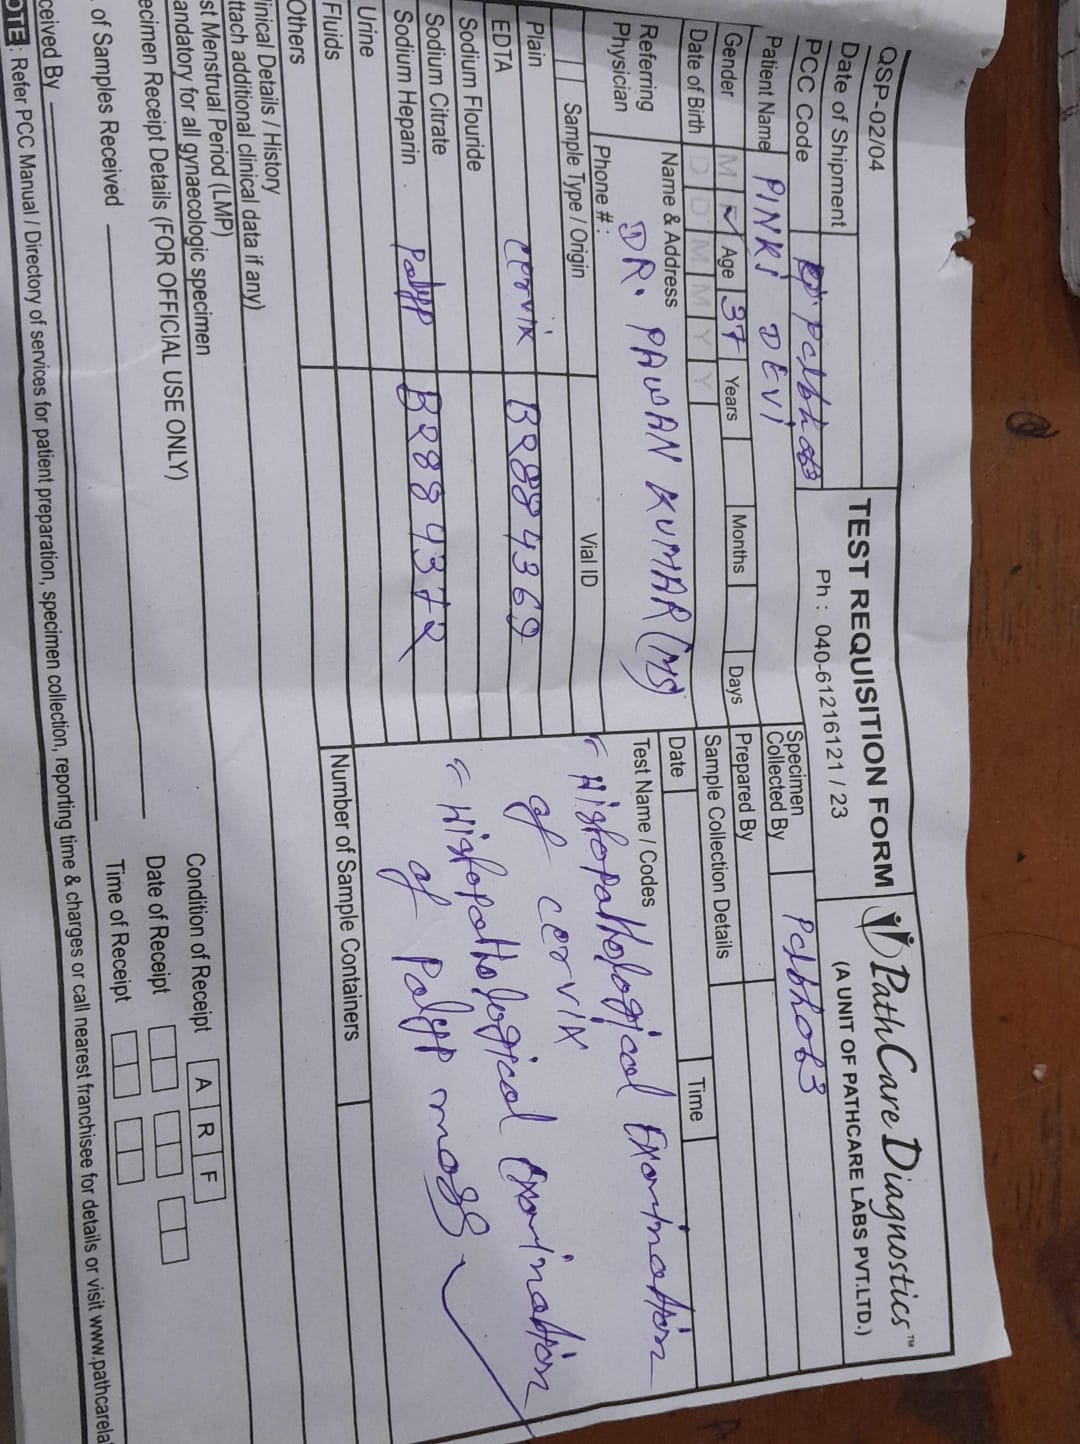 QSP-02/04
TEST REQUISITION FORM
Ph : 040-61216121 / 23
PathCare Diagnostics™
(A UNIT OF PATHCARE LABS PVT.LTD.)
Date of Shipment
PCC Code
Specimen Collected By
Patient Name PINKI DEVI
Prepared By
Gender M F ✓ Age 37 Years Months Days
Sample Collection Details
Date of Birth D D M M Y Y
Date Time
Referring Physician
Name & Address
DR. PAWAN KUMAR (MS)
Phone # :
Test Name / Codes
Histopathological Examination
of cervix
Histopathological Examination
of Polyp mass
Sample Type / Origin Vial ID
Plain
EDTA cervix B2884369
Sodium Flouride
Sodium Citrate
Sodium Heparin Polyp B2889372
Urine
Fluids
Others
Number of Sample Containers
inical Details / History
ttach additional clinical data if any)
st Menstrual Period (LMP)
andatory for all gynaecologic specimen
ecimen Receipt Details (FOR OFFICIAL USE ONLY)
Condition of Receipt A R F
Date of Receipt
. of Samples Received
Time of Receipt
ceived By
OTE : Refer PCC Manual / Directory of services for patient preparation, specimen collection, reporting time & charges or call nearest franchisee for details or visit www.pathcarela